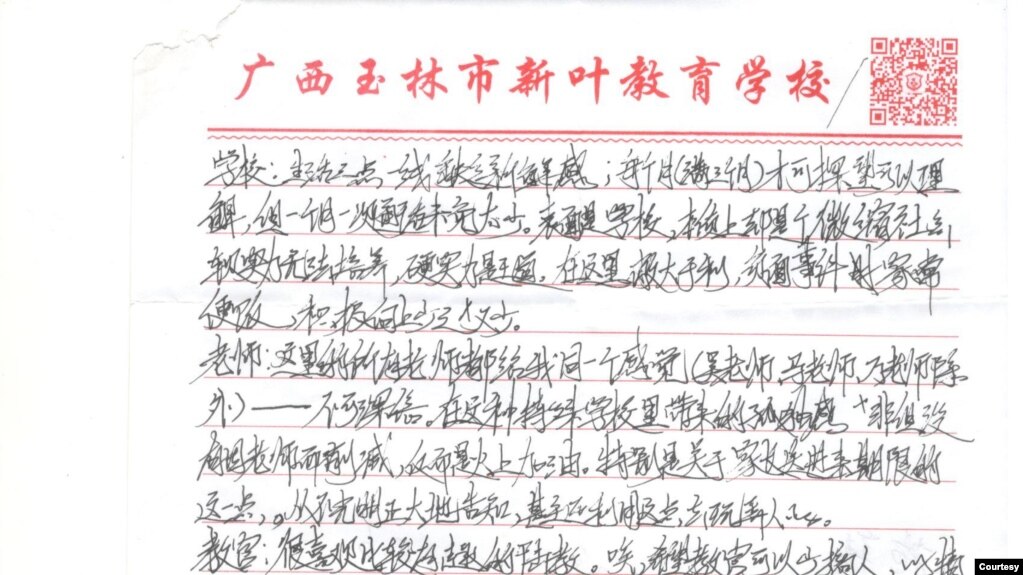 广西玉林市新叶教育学校
学校：生活三点一线缺乏新鲜感；每个月(满三个月)才可探望可以理
解，但一个月一次通话未免太少。表面是学校，本质上却是个微缩社会，
软实力无法培养，硬实力是王道。在这里，弊大于利，负面事件是家常
便饭，积极向上少之又少。
老师：这里的所有老师都给我同一个感觉(吴老师、马老师、老师除
外)——不可深信。在这种特殊学校里带来的孤独感，非但没
有因老师而削减，反而是火上加油。特别是关于家长送进来期限的
这一点，从不光明正大地告知，甚至利用这点去玩弄人心。
教官：很喜欢比较有趣的教。唉，希望教官可以少
Courtesy